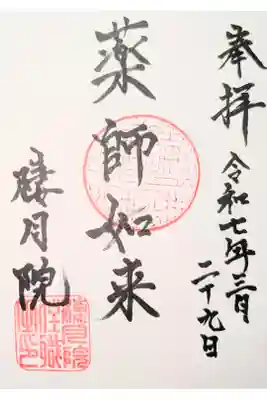 奉拝 令和七年三月二十九日
薬師如来
月院